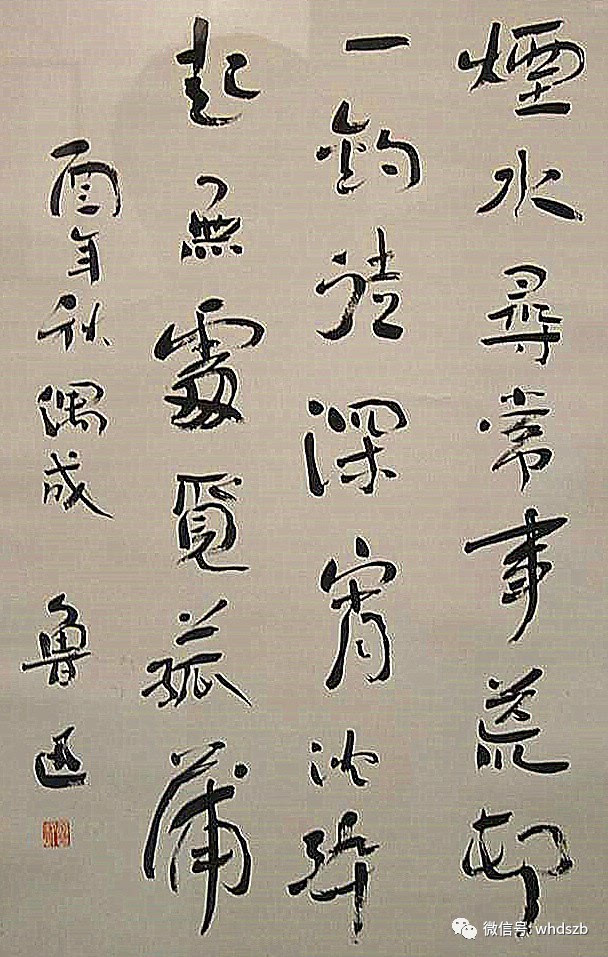 煙水尋常事荒邨
一釣徒深宵沈醉
起無處覓菰蒲
酉年秋偶成 魯迅
微信号: whdszb